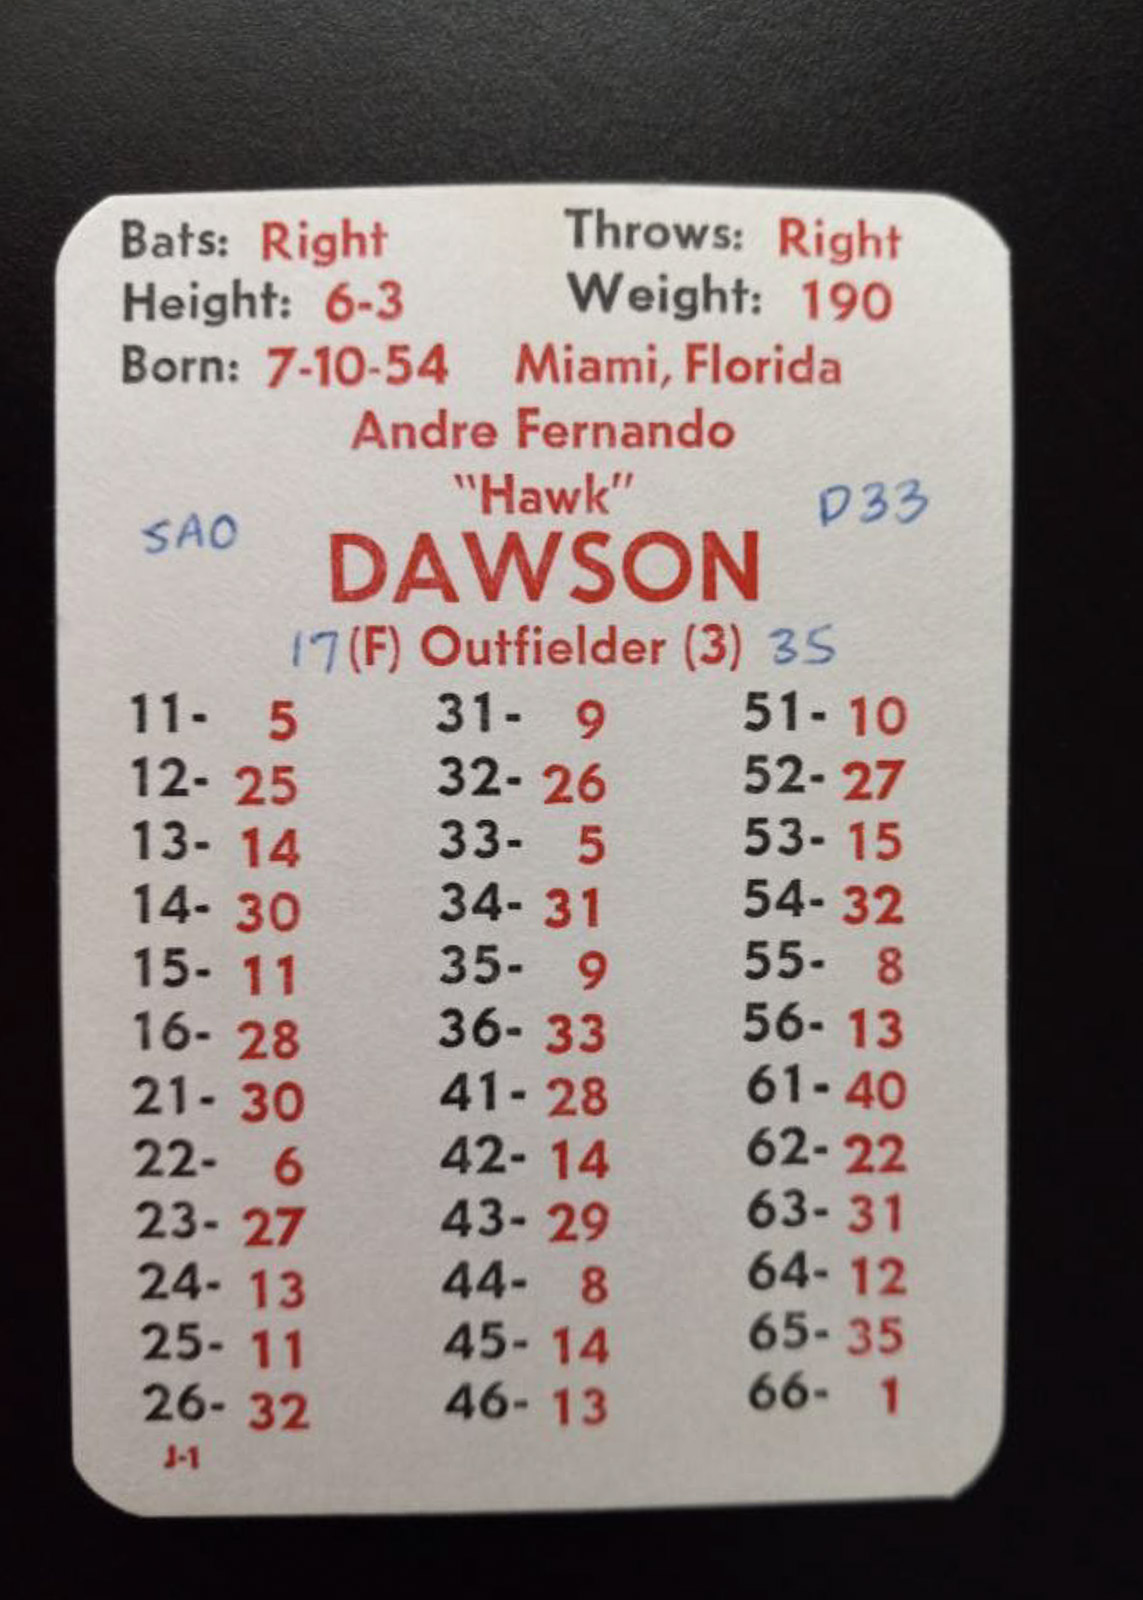 Bats: Right Throws: Right
Height: 6-3 Weight: 190
Born: 7-10-54 Miami, Florida
Andre Fernando
"Hawk"
SAO D33
DAWSON
17 (F) Outfielder (3) 35
11- 5 31- 9 51- 10
12- 25 32- 26 52- 27
13- 14 33- 5 53- 15
14- 30 34- 31 54- 32
15- 11 35- 9 55- 8
16- 28 36- 33 56- 13
21- 30 41- 28 61- 40
22- 6 42- 14 62- 22
23- 27 43- 29 63- 31
24- 13 44- 8 64- 12
25- 11 45- 14 65- 35
26- 32 46- 13 66- 1
J-1